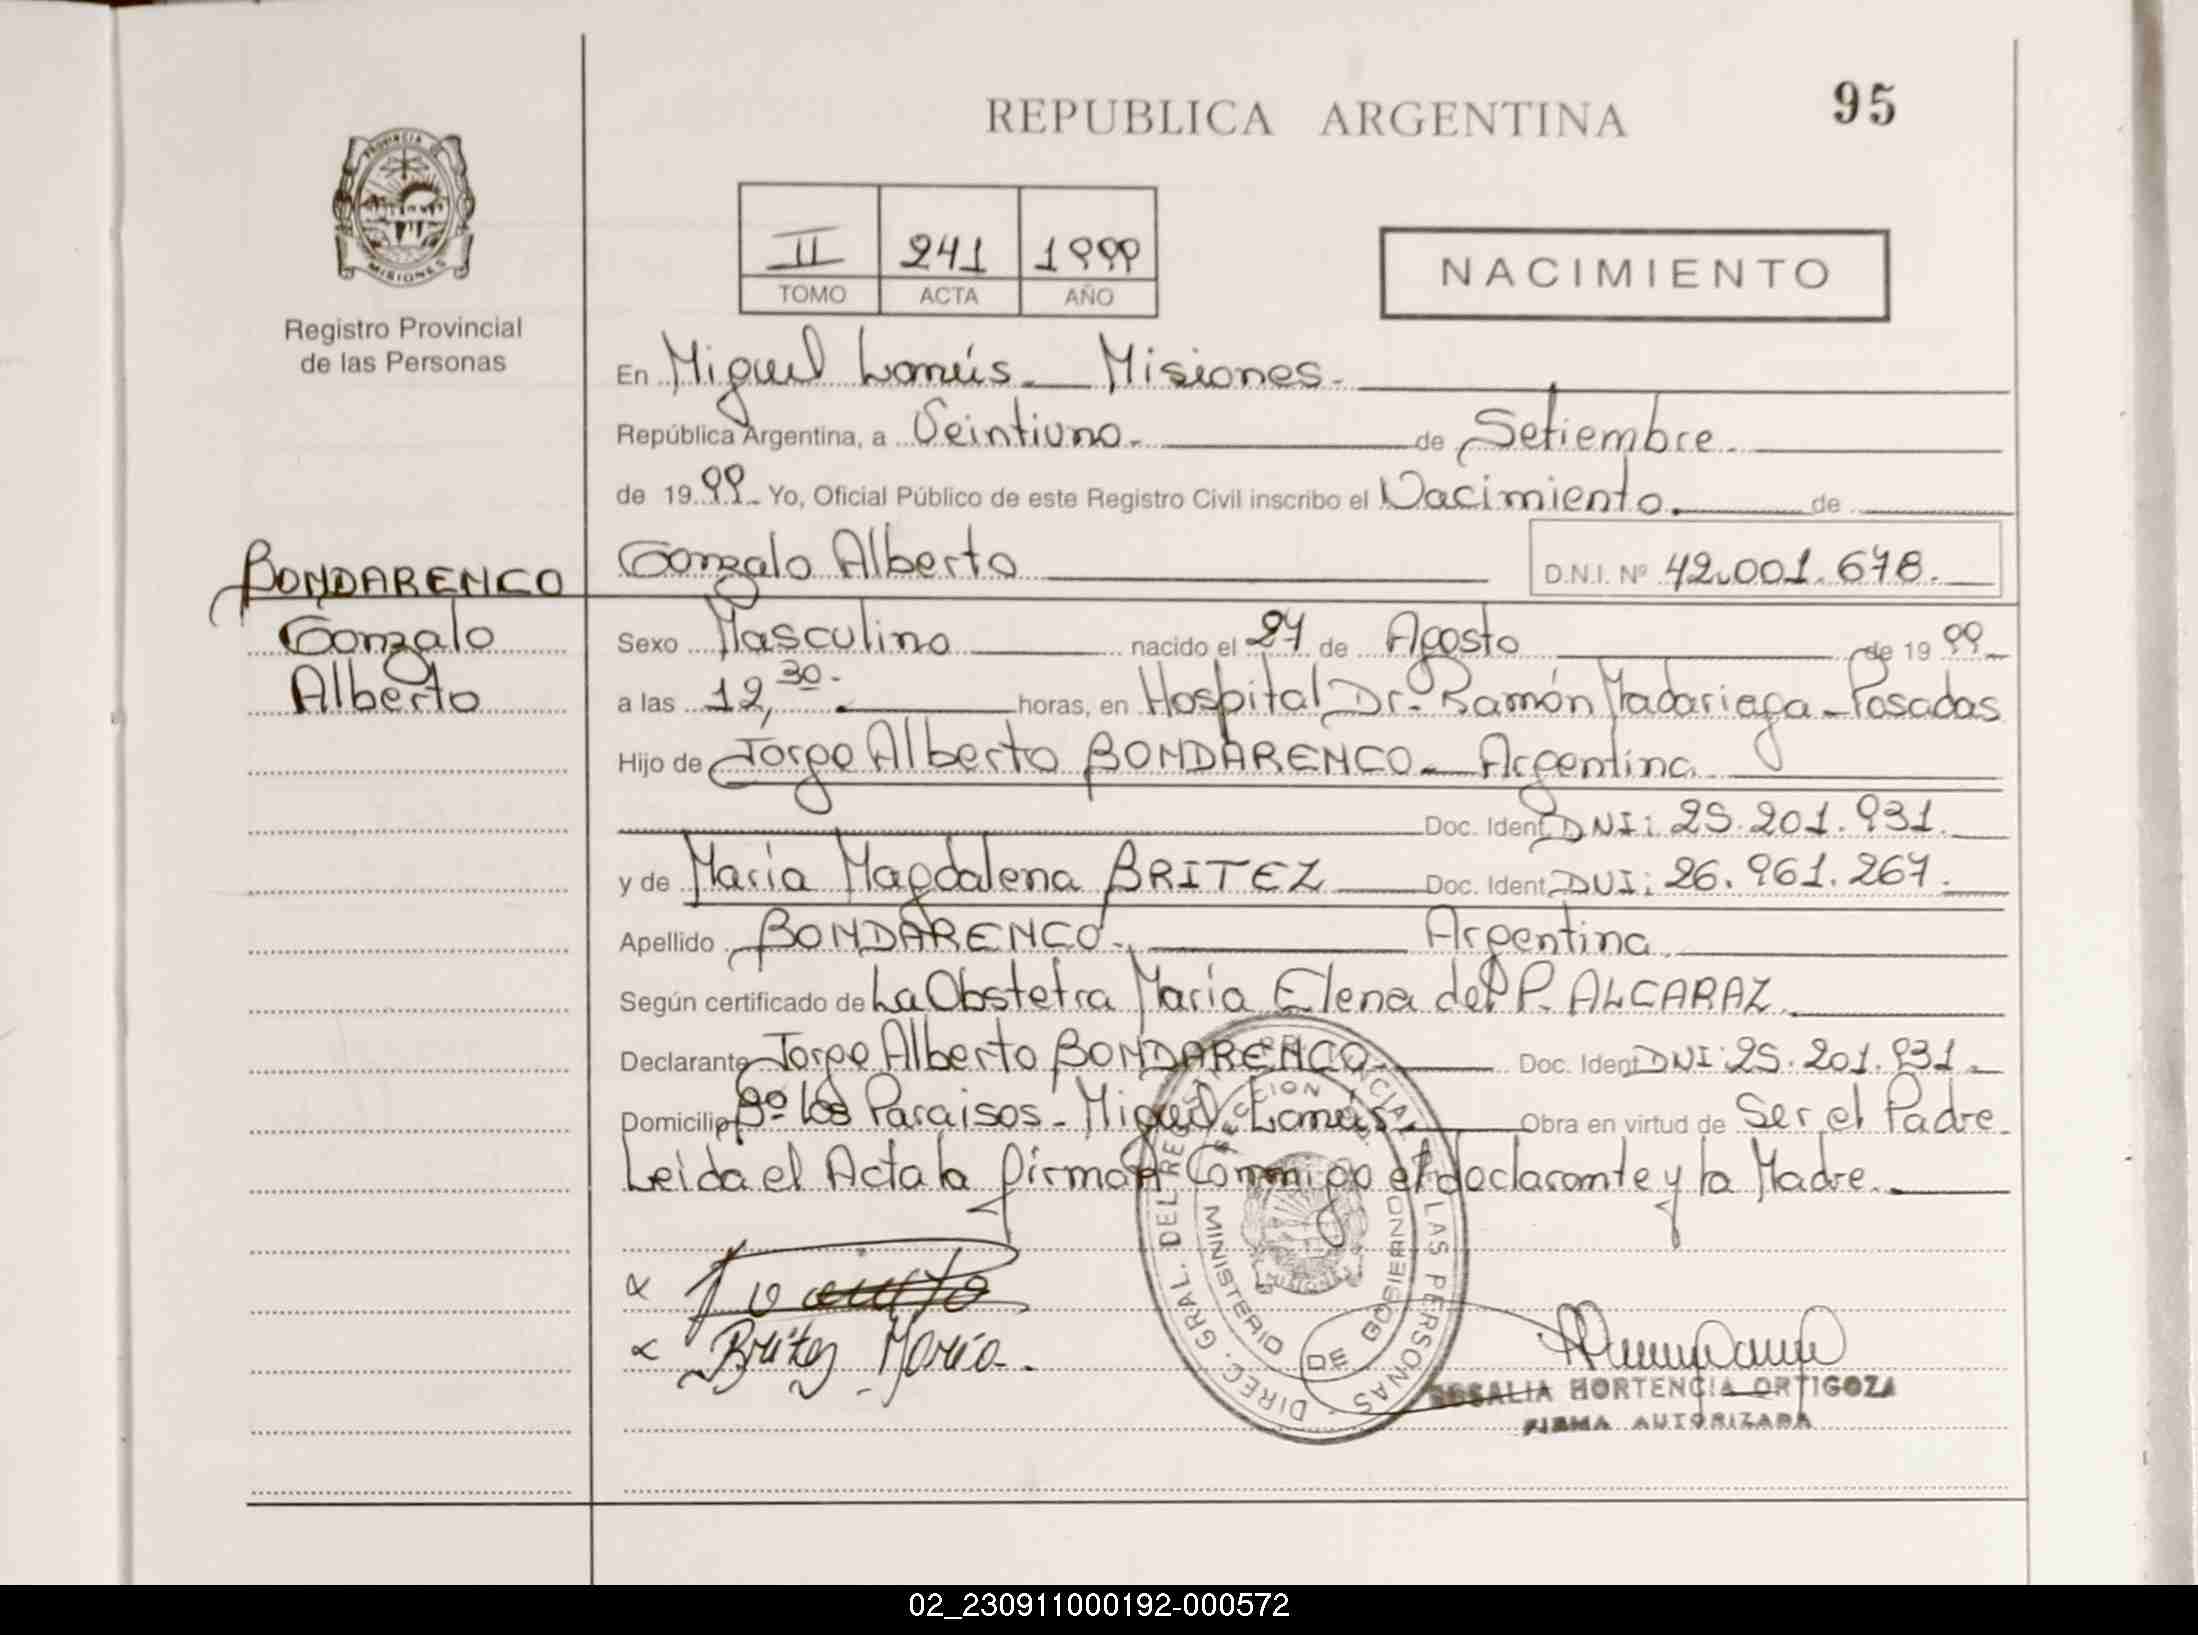 REPUBLICA ARGENTINA
95
PROVINCIA DE
MISIONES
Registro Provincial
de las Personas
II 241 1999
TOMO ACTA AÑO
NACIMIENTO
En Miguel Lanús - Misiones.
República Argentina, a Veintiuno. de Setiembre.
de 1999 Yo, Oficial Público de este Registro Civil inscribo el Nacimiento. de
Gonzalo Alberto D.N.I. Nº 42.001.678.
BONDARENCO
Gonzalo
Alberto
Sexo Masculino nacido el 27 de Agosto de 1999
a las 12,30. horas, en Hospital Dr. Ramón Madariaga - Posadas
Hijo de Jorge Alberto BONDARENCO - Argentina
Doc. Ident. DNI: 25.201.931.
y de María Magdalena BRITEZ Doc. Ident. DNI: 26.961.267.
Apellido BONDARENCO. Argentina.
Según certificado de La Obstetra María Elena del P. ALCARAZ
Declarante Jorge Alberto BONDARENCO. Doc. Ident DNI: 25.201.931.
Domicilio Bº los Paraisos - Miguel Lanús. Obra en virtud de Ser el Padre.
Leida el Acta la firman Conmigo el declarante y la Madre.
Britez María.
DIREC. GRAL. DEL REG. PROVINCIAL DE LAS PERSONAS
MINISTERIO DE GOBIERNO
ROSALIA HORTENCIA ORTIGOZA
FIRMA AUTORIZADA
02_230911000192-000572